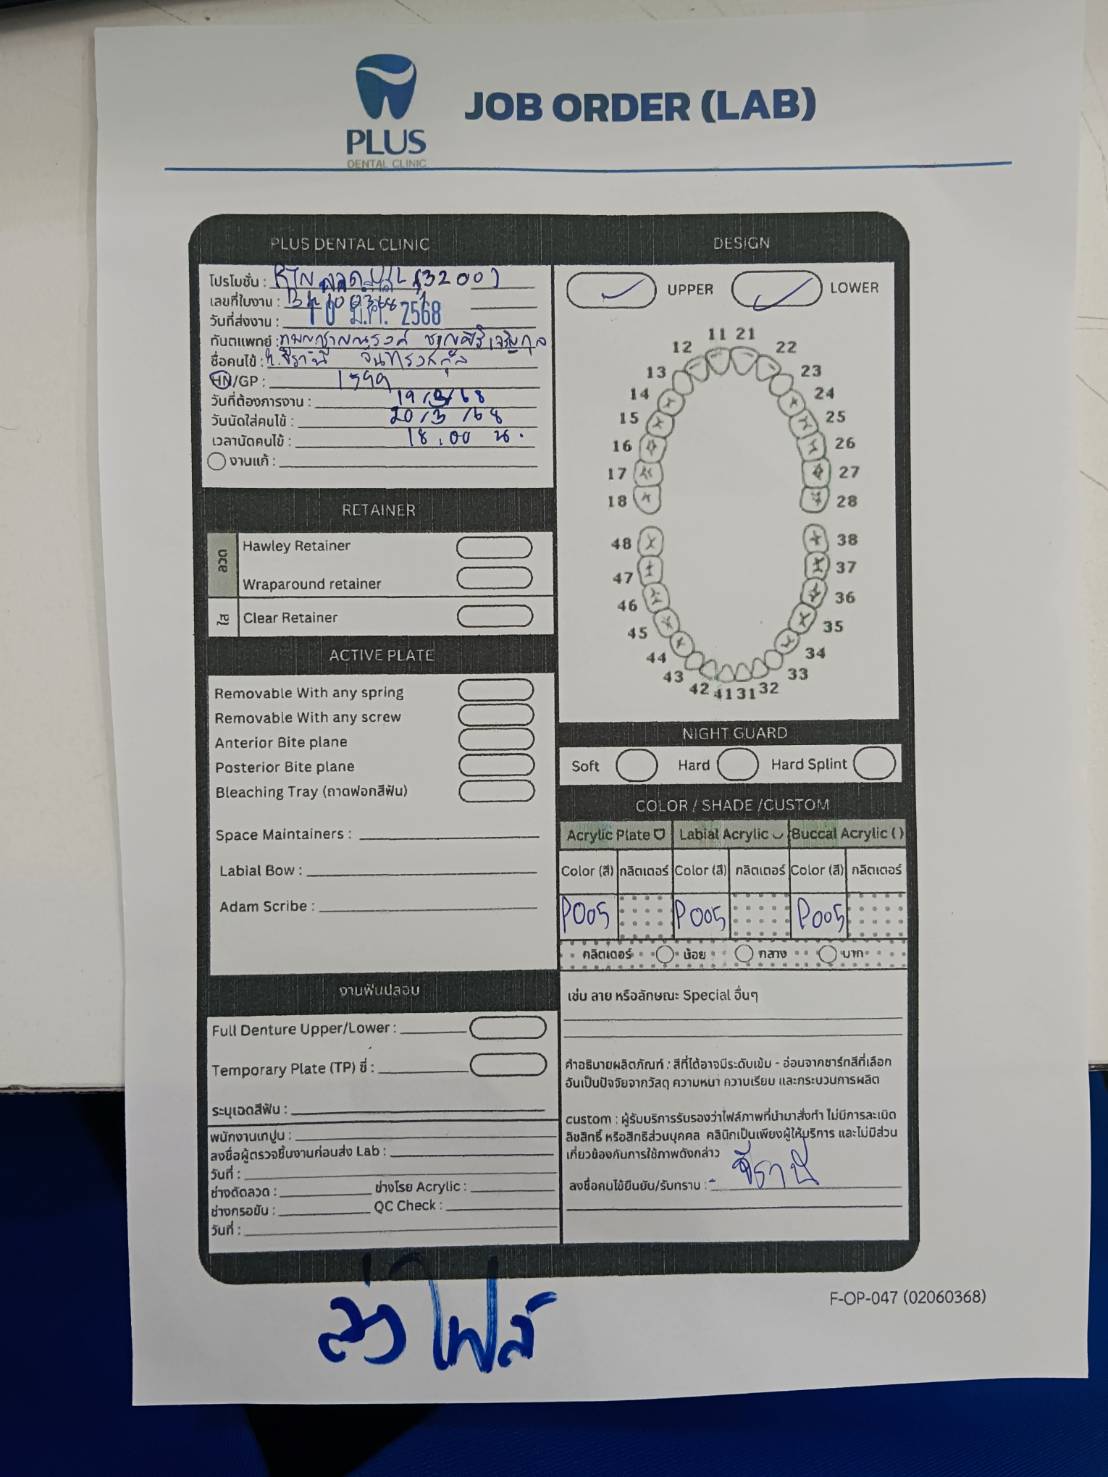 PLUS
DENTAL CLINIC
JOB ORDER (LAB)
PLUS DENTAL CLINIC
โปรโมชั่น : RTN ลวด U/L (3200)
เลขที่ใบงาน :
วันที่ส่งงาน : 10 มี.ค. 2568
ทันตแพทย์ :
ชื่อคนไข้ :
HN/GP : 1599
วันที่ต้องการงาน : 19/3/68
วันนัดใส่คนไข้ : 20/3/68
เวลานัดคนไข้ : 18.00 น.
งานแก้ :
RETAINER
ลวด
Hawley Retainer
Wraparound retainer
ใส
Clear Retainer
ACTIVE PLATE
Removable With any spring
Removable With any screw
Anterior Bite plane
Posterior Bite plane
Bleaching Tray (ถาดฟอกสีฟัน)
Space Maintainers :
Labial Bow :
Adam Scribe :
งานฟันปลอม
Full Denture Upper/Lower :
Temporary Plate (TP) ซี่ :
ระบุเฉดสีฟัน :
พนักงานเทปูน :
ลงชื่อผู้ตรวจชิ้นงานก่อนส่ง Lab :
วันที่ :
ช่างดัดลวด : ช่างโรย Acrylic :
ช่างกรอขัด : QC Check :
วันที่ :
DESIGN
UPPER LOWER
11 21
12 22
13 23
14 24
15 25
16 26
17 27
18 28
48 38
47 37
46 36
45 35
44 34
43 33
42 41 31 32
NIGHT GUARD
Soft Hard Hard Splint
COLOR / SHADE /CUSTOM
Acrylic Plate Labial Acrylic Buccal Acrylic ( )
Color (สี) กลิตเตอร์ Color (สี) กลิตเตอร์ Color (สี) กลิตเตอร์
P005 P005 P005
กลิตเตอร์ น้อย กลาง มาก
เช่น ลาย หรือลักษณะ Special อื่นๆ
คำอธิบายผลิตภัณฑ์ : สีที่ได้อาจมีระดับเข้ม - อ่อนจากชาร์ทสีที่เลือก
อันเป็นปัจจัยจากวัสดุ ความหนา ความเรียบ และกระบวนการผลิต
custom : ผู้รับบริการรับรองว่าไฟล์ภาพที่นำมาสั่งทำ ไม่มีการละเมิด
ลิขสิทธิ์ หรือสิทธิส่วนบุคคล คลินิกเป็นเพียงผู้ให้บริการ และไม่มีส่วน
เกี่ยวข้องกับการใช้ภาพดังกล่าว
ลงชื่อคนไข้ยืนยัน/รับทราบ : จีรานี
F-OP-047 (02060368)
ส่งไฟล์